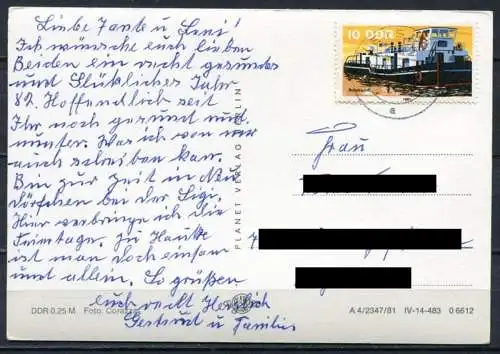 Liebe Tante u Leni!
Ich wünsche euch lieben
Beiden ein recht gesundes
und Glückliches Jahr
82. Hoffendlich seit
Ihr noch gesund und
munter. Was ich von mir
auch schreiben kan.
Bin zur Zeit in Neu
dörfchen bei der Sigi.
Hier verbringe ich die
Feiertage. zu Hause
ist man doch einsam
und allein. So grüßen
euch recht Herzlich
Gertrud u Familie
DDR 0,25 M Foto:
PLANET VERLAG BERLIN
10 DDR
Frau
A 4/2347/81 IV-14-483 0 6612